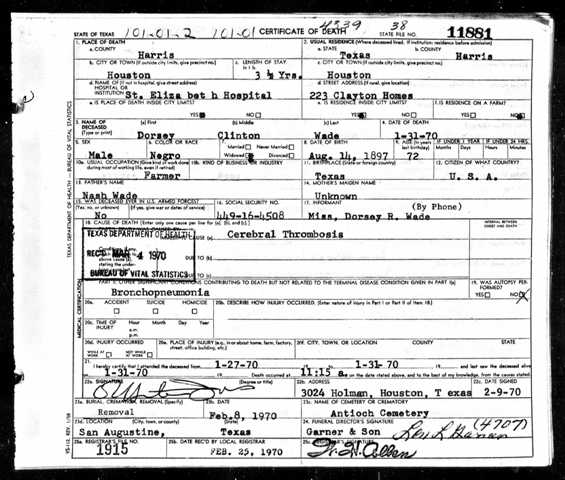 4339 38
STATE OF TEXAS 101-01-2 101-01 CERTIFICATE OF DEATH STATE FILE NO. 11881
1. PLACE OF DEATH 2. USUAL RESIDENCE (Where deceased lived. If institution: residence before admission)
a. COUNTY a. STATE b. COUNTY
Harris Texas Harris
b. CITY OR TOWN (If outside city limits, give precinct no.) c. LENGTH OF STAY c. CITY OR TOWN (If outside city limits, give precinct no.)
Houston 3 ½ Yrs. Houston
d. NAME OF (If not in hospital, give street address) d. STREET ADDRESS (If rural, give location)
HOSPITAL OR
INSTITUTION St. Eliza bet h Hospital 223 Clayton Homes
e. IS PLACE OF DEATH INSIDE CITY LIMITS? e. IS RESIDENCE INSIDE CITY LIMITS? f. IS RESIDENCE ON A FARM?
YES NO YES NO YES NO
3. NAME OF DECEASED (a) First (b) Middle (c) Last 4. DATE OF DEATH
(Type or print) Dorsey Clinton Wade 1-31-70
5. SEX 6. COLOR OR RACE 7. Married Never Married 8. DATE OF BIRTH 9. AGE (In years last birthday) IF UNDER 1 YEAR IF UNDER 24 HRS.
Male Negro Widowed Divorced Aug. 14, 1897 72 Months Days Hours Min.
10a. USUAL OCCUPATION (Give kind of work done during most of working life, even if retired) 10b. KIND OF BUSINESS OR INDUSTRY 11. BIRTHPLACE (State or foreign country) 12. CITIZEN OF WHAT COUNTRY?
Farmer Texas U. S. A.
13. FATHER'S NAME 14. MOTHER'S MAIDEN NAME
Nash Wade Unknown
15. WAS DECEASED EVER IN U.S. ARMED FORCES? 16. SOCIAL SECURITY NO. 17. INFORMANT (By Phone)
(Yes, no, or unknown) (If yes, give war or dates of service)
No 449-16-4508 Miss. Dorsey R. Wade
18. CAUSE OF DEATH [Enter only one cause per line for (a), (b), and (c).] INTERVAL BETWEEN ONSET AND DEATH
TEXAS DEPARTMENT OF HEALTH CAUSE (a) Cerebral Thrombosis
REC'D MAR 4 1970 DUE TO (b)
BUREAU OF VITAL STATISTICS DUE TO (c)
PART II. OTHER SIGNIFICANT CONDITIONS CONTRIBUTING TO DEATH BUT NOT RELATED TO THE TERMINAL DISEASE CONDITION GIVEN IN PART I(a) 19. WAS AUTOPSY PERFORMED?
Bronchopneumonia YES NO
20a. ACCIDENT SUICIDE HOMICIDE 20b. DESCRIBE HOW INJURY OCCURRED. (Enter nature of injury in Part I or Part II of item 18.)
20c. TIME OF INJURY Hour Month Day Year
a.m.
p.m.
20d. INJURY OCCURRED 20e. PLACE OF INJURY (e.g., in or about home, farm, factory, street, office building, etc.) 20f. CITY, TOWN, OR LOCATION COUNTY STATE
WHILE AT WORK NOT WHILE AT WORK
21. I hereby certify that I attended the deceased from 1-27-70 to 1-31-70 and last saw the deceased alive
on 1-31-70 Death occurred at 11:15 a. m. on the date stated above, and to the best of my knowledge, from the causes stated.
22a. SIGNATURE (Degree or title) 22b. ADDRESS 22c. DATE SIGNED
3024 Holman, Houston, T exas 2-9-70
23a. BURIAL, CREMATION, REMOVAL (Specify) 23b. DATE 23c. NAME OF CEMETERY OR CREMATORY
Removal Feb.8, 1970 Antioch Cemetery
23d. LOCATION (City, town, or county) (State) 24. FUNERAL DIRECTOR'S SIGNATURE (4707)
San Augustine, Texas Garner & Son
25a. REGISTRAR'S FILE NO. 25b. DATE REC'D BY LOCAL REGISTRAR 25c. REGISTRAR'S SIGNATURE
1915 FEB. 25, 1970 W. H. Allen
TEXAS DEPARTMENT OF HEALTH — BUREAU OF VITAL STATISTICS
MEDICAL CERTIFICATION
VS-112, REV. 1/58